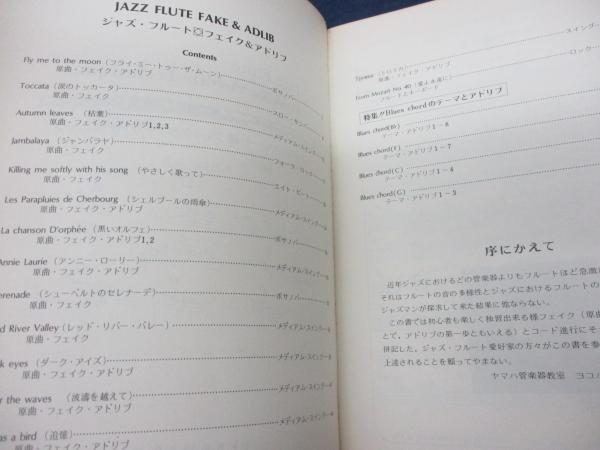 JAZZ FLUTE FAKE & ADLIB
ジャズ・フルート フェイク&アドリブ
Contents
Fly me to the moon (フライ・ミー・トゥー・ザ・ムーン) ボサノバー
原曲・フェイク・アドリブ
Toccata (涙のトッカータ) スロー・サンバ
原曲・フェイク
Autumn leaves (枯葉) メディアム・スイング
原曲・フェイク・アドリブ1,2,3
Jambalaya (ジャンバラヤ) フォーク・ロック
原曲・フェイク
Killing me softly with his song (やさしく歌って) エイト・ビート
原曲・フェイク
Les Parapluies de Cherbourg (シェルブールの雨傘) メディアム・スイング
原曲・フェイク・アドリブ
La chanson D'orphée (黒いオルフェ) ボサノバ
原曲・フェイク・アドリブ1,2
Annie Laurie (アンニー・ローリー) メディアム・スイング
原曲・フェイク・アドリブ
erenade (シューベルトのセレナーデ) ボサノバ
原曲・フェイク
d River Valley (レッド・リバー・バレー) メディアム・スイング
原曲・フェイク
k eyes (ダーク・アイズ) メディアム・スイング
原曲・フェイク・アドリブ
r the waves (波濤を越えて) メディアム・スイング
原曲・フェイク・アドリブ
as a bird (追憶) メディアム・スイング
原曲・フェイク・アドリブ
スイング
原曲・フェイク・アドリブ
from Mozart No.40 (愛よ永遠に) ロック
フルートとキーボード
特集!!Blues chordのテーマとアドリブ
Blues chord(B♭)
テーマ・アドリブ1-8
Blues chord(F)
テーマ・アドリブ1-7
Blues chord(C)
テーマ・アドリブ1-4
Blues chord(G)
テーマ・アドリブ1-3
序にかえて
近年ジャズにおけるどの管楽器よりもフルートほど急激
それはフルートの音の多様性とジャズにおけるフルートの
ジャズマンが探求して来た結果に他ならない。
この書では初心者も楽しく独習出来る様フェイク(原曲
とて、アドリブの第一歩ともいえる)とコード進行にそ
併記した。ジャズ・フルート愛好家の方々がこの書を参
上達されることを願ってやまない。
ヤマハ管楽器教室 ヨコ